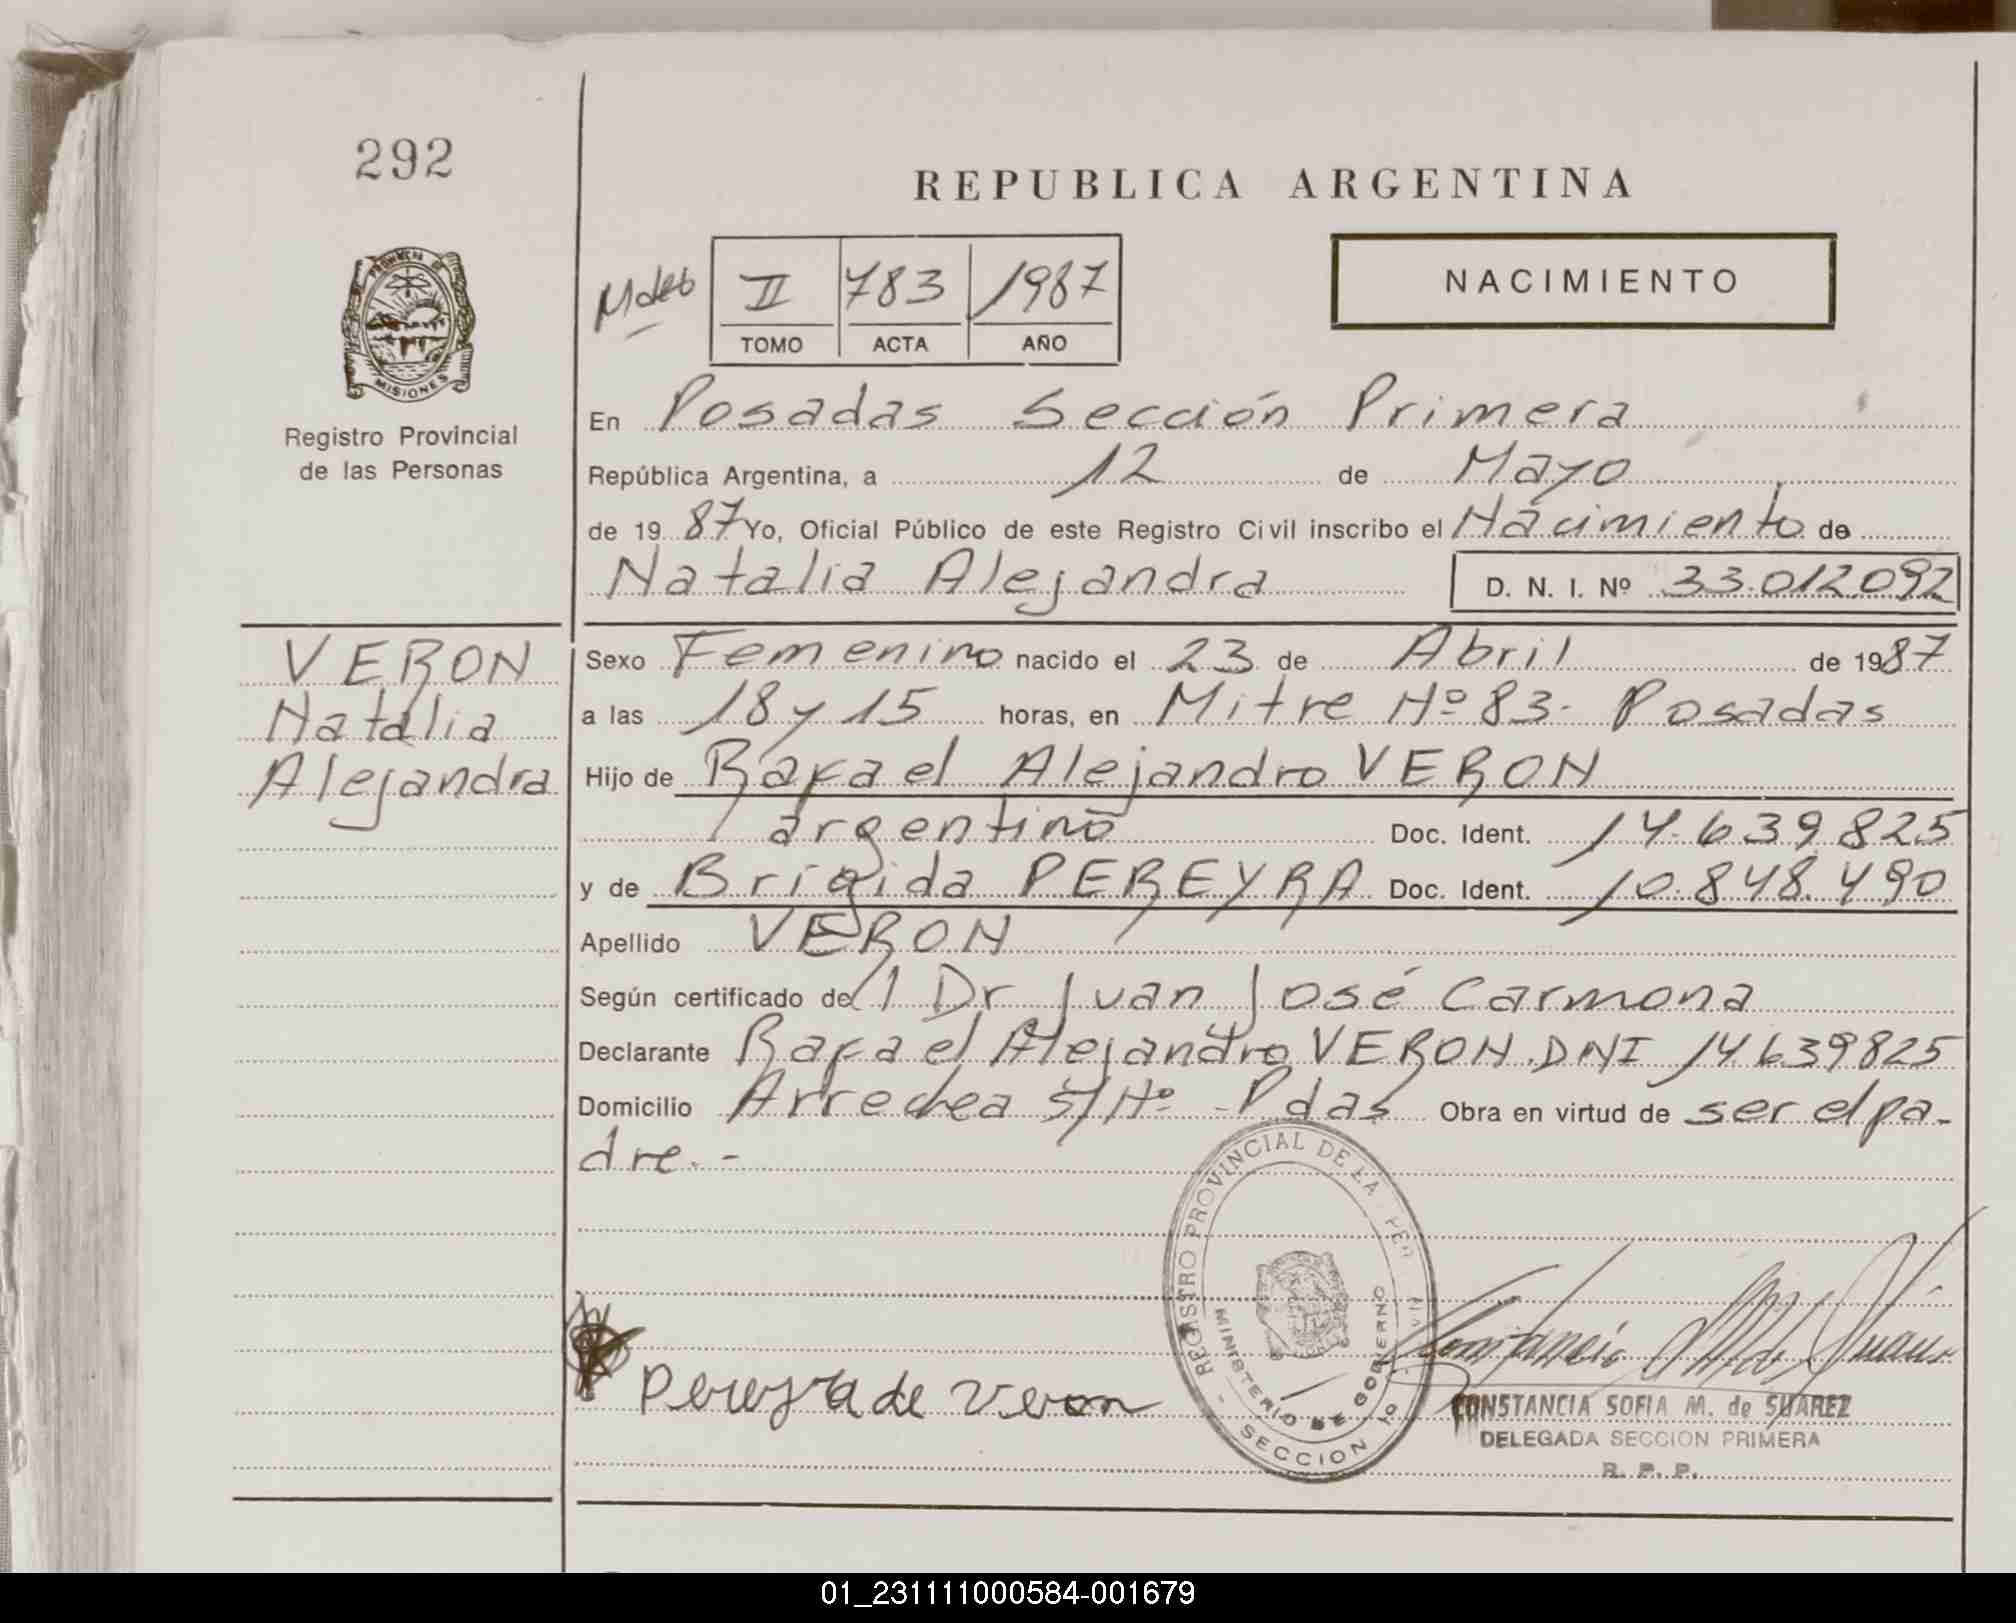 292
REPUBLICA ARGENTINA
II 783 1987
TOMO ACTA AÑO
NACIMIENTO
PROVINCIA DE
MISIONES
Registro Provincial
de las Personas
En Posadas Sección Primera
República Argentina, a 12 de Mayo
de 19 87 Yo, Oficial Público de este Registro Civil inscribo el Nacimiento de
Natalia Alejandra D. N. I. Nº 33.012.092
VERON
Natalia
Alejandra
Sexo Femenino nacido el 23 de Abril de 1987
a las 18 y 15 horas, en Mitre Nº 83- Posadas
Hijo de Rafael Alejandro VERON
argentino Doc. Ident. 14.639.825
y de Brígida PEREYRA Doc. Ident. 10.848.490
Apellido VERON
Según certificado del Dr Juan José Carmona
Declarante Rafael Alejandro VERON. DNI 14.639825
Domicilio Arrechea S/Nº - Pdas Obra en virtud de ser el pa-
dre.-
REGISTRO PROVINCIAL DE LA
MINISTERIO DE GOBIERNO
SECCION 1º
Pereyra de Veron
CONSTANCIA SOFIA M. de SUAREZ
DELEGADA SECCION PRIMERA
R. P. P.
01_231111000584-001679